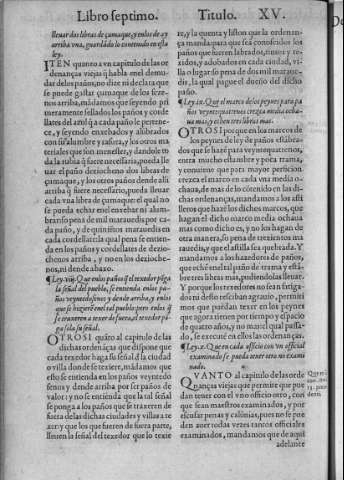 Libro septimo. Titulo. XV.
lleuar dos libras de çumaque, y enlos de ay
arriba vna, guardãdo lo contenido en esta
ley.
ITEN quanto a vn capitulo de las or
denanças viejas q̃ habla enel demu-
dar delos paños, no dize ni declara que
se puede gastar çumaque delos seze-
nos arriba, mãdamos que seyendo pri
meramente sellados los paños y corde
llates del azul q̃ a cada paño le pertene-
ce, y seyendo enxebados y alũbrados
con su alumbre y rasura, y los otros ma
teriales que son menester, y dandole to
da la rubia q̃ fuere necessaria, pueda lle
uar el paño deziocheno dos libras de
çumaque, y los otros paños dende alli
arriba q̃ fuere necessario, pueda lleuar
cada vna libra de çumaque: el qual no
se pueda echar enel enxebar ni alum-
brar so pena de mil marauedis por ca-
da paño, y de quinientos marauedis en
cada cordellate: la qual pena se entien-
da en los paños y cordellates de dizio-
chenos arriba, y no en los dezioche-
nos, ni dende abaxo.
¶ Ley. viij. Que enlos paños q̃ el texedor põga
la señal del pueblo, se entienda enlos pa-
ños veynte dosenos y dende arriba, y enlos
que se hizierẽ enel tal pueblo pero enlos q̃
se traxeren a texer de fuera, el texedor põ
ga sola su señal.
OTROSI quãto al capitulo de las
dichas ordenãças que dispone que
cada texedor haga su señal d̃ la ciudad
o villa donde se texiere, mãdamos que
esto se entienda en los paños veyntedo
senos y dende arriba por ser paños de
valor: y no se entienda que la tal señal
se ponga a los paños que se traxeren de
fuera delas dichas ciudades y villas a te
xer: y que los que fueren de fuera parte,
lleuen la señal del texedor que lo texie
re, y la quenta y liston que la ordenan-
ça manda para que sea conoscidos los
paños que fueren labrados, tintos y te-
xidos, y adobados en cada ciudad, vi-
lla o lugar so pena de dos mil maraue-
dis, la qual pague el dueño del dicho
paño.
¶ Ley. ix. Que el marco de los peynes para pa
ños veyntequatrenos crezca media ocha-
ua mas, y echen tres libras mas.
OTROSI porque en los marcos de
los peynes de ley de paños estãbra-
dos que se hazẽ para veyntequatrenos,
entra mucho estambre y poca trama,
y conuiene que para mayor perficion
crezca el marco en cada vna media o-
chaua, de mas de lo cõtenido en las di-
chas ordenanças, mandamos a los asti
lleros que hazẽ los dichos marcos, que
hagan el dicho marco media ochaua
mas como dicho es, y no los hagan de
otra manera, so pena de trezientos ma
rauedis, y que el astilla sea quebrada. Y
mandamos a los hazedores de paños,
que echẽ enel tal paño de trama y estã-
bre tres libras mas, pudiendolas lleuar.
Y porque los texedores no sean fatiga-
dos ni desto resciban agrauio, permiti
mos que puedan texer en los peynes
que agora tienen por tiempo y espacio
de quatro años, y no mas: el qual passa-
do, se execute en ellos las ordenanças.
¶ Ley. x. Que en cada officio con vn official
examinado se pueda tener otro no exami
nado.
QVANTO al capitulo de las or de
nanças viejas que permite que pue
dan tener con el vno officio otro, con
que sean maestros examinados, y por
escusar penas y calũnias, pues no se pue
den auer todas vezes tantos officiales
examinados, mandamos que de aqui
adelante